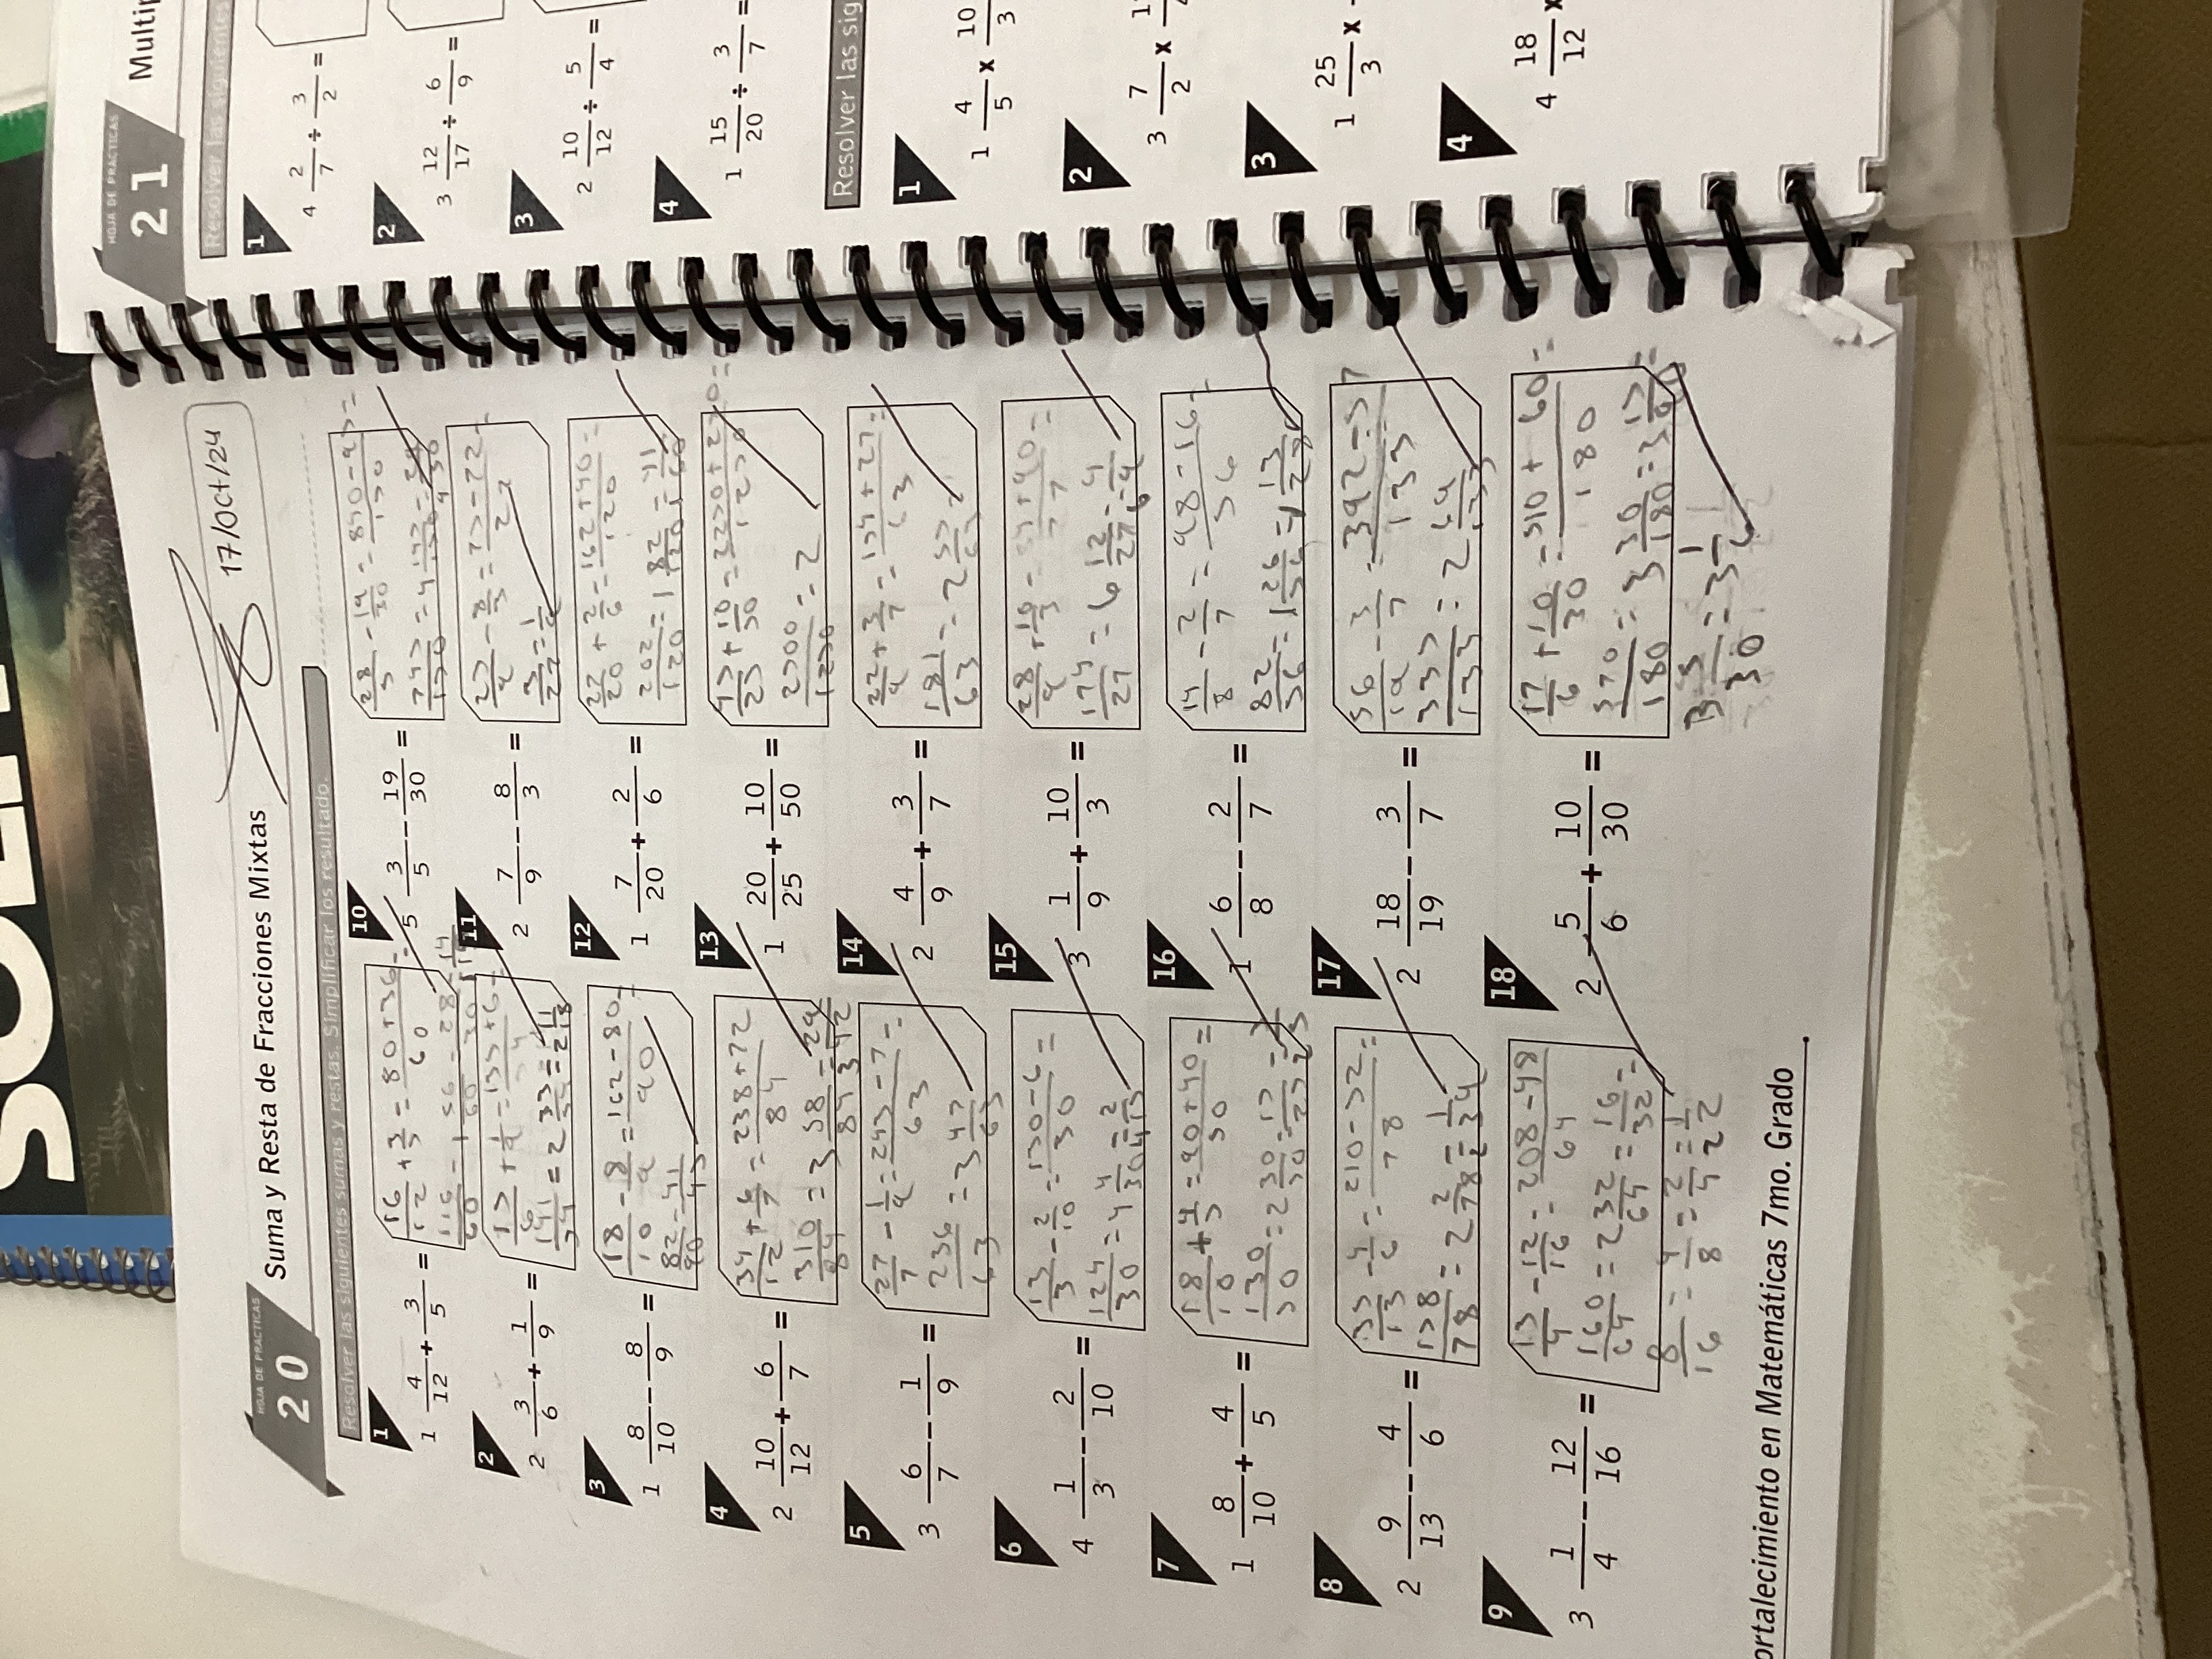 HOJA DE PRACTICAS
20
Suma y Resta de Fracciones Mixtas
17/oct/24
Resolver las siguientes sumas y restas. Simplificar los resultado.
1
1 4/12 + 3/5 =
16/12 + 3/5 = 80+36/60 =
116/60 = 1 56/60 = 28/30 = 14/15
2
2 3/6 + 1/9 =
15/6 + 1/9 = 135+6/54
141/54 = 2 33/54 = 2 11/18
3
1 8/10 - 8/9 =
18/10 - 8/9 = 162-80/90 =
82/90 = 41/45
4
2 10/12 + 6/7 =
34/12 + 6/7 = 238+72/84
310/84 = 3 58/84 = 3 29/42
5
3 6/7 - 1/9 =
27/7 - 1/9 = 243-7/63 =
236/63 = 3 47/63
6
4 1/3 - 2/10 =
13/3 - 2/10 = 130-6/30 =
124/30 = 4 4/30 = 4 2/15
7
1 8/10 + 4/5 =
18/10 + 4/5 = 90+40/50 =
130/50 = 2 30/50 = 15/25 = 3/5
8
2 9/13 - 4/6 =
35/13 - 4/6 = 210-52/78 =
158/78 = 2 2/78 = 2 1/39
9
3 1/4 - 12/16 =
13/4 - 12/16 = 208-48/64
160/64 = 2 32/64 = 16/32 =
8/16 = 4/8 = 2/4 = 2 1/2
10
5 3/5 - 19/30 =
28/5 - 19/30 = 840-95/150 =
745/150 = 4 145/150 = 29/30
11
2 7/9 - 8/3 =
25/9 - 8/3 = 75-72/27
3/27 = 1/9
12
1 7/20 + 2/6 =
27/20 + 2/6 = 162+40/120 =
202/120 = 1 82/120 = 41/60
13
1 20/25 + 10/50 =
45/25 + 10/50 = 2250+250/1250 =
2500/1250 = 2
14
2 4/9 + 3/7 =
22/9 + 3/7 = 154+27/63 =
181/63 = 2 55/63
15
3 1/9 + 10/3 =
28/9 + 10/3 = 84+90/27 =
174/27 = 6 12/27 = 6 4/9
16
1 6/8 - 2/7 =
14/8 - 2/7 = 98-16/56
82/56 = 1 26/56 = 1 13/28
17
2 18/19 - 3/7 =
56/19 - 3/7 = 392-57/133
335/133 = 2 69/133
18
2 5/6 + 10/30 =
17/6 + 10/30 = 510+60/180 =
570/180 = 3 30/180 = 3 15/90
3 5/30 = 3 1/6
ortalecimiento en Matemáticas 7mo. Grado
HOJA DE PRACTICAS
21
Multip
Resolver las siguientes
1
4 2/7 ÷ 3/2 =
2
3 12/17 ÷ 6/9 =
3
2 10/12 ÷ 5/4 =
4
1 15/20 ÷ 3/7 =
Resolver las sig
1
1 4/5 x 10/3
2
3 7/2 x
3
1 25/3 x
4
4 18/12 x